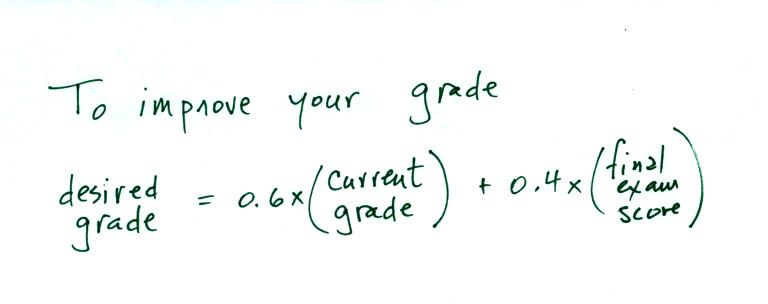 To improve your grade
desired grade = 0.6 x (current grade) + 0.4 x (final exam score)